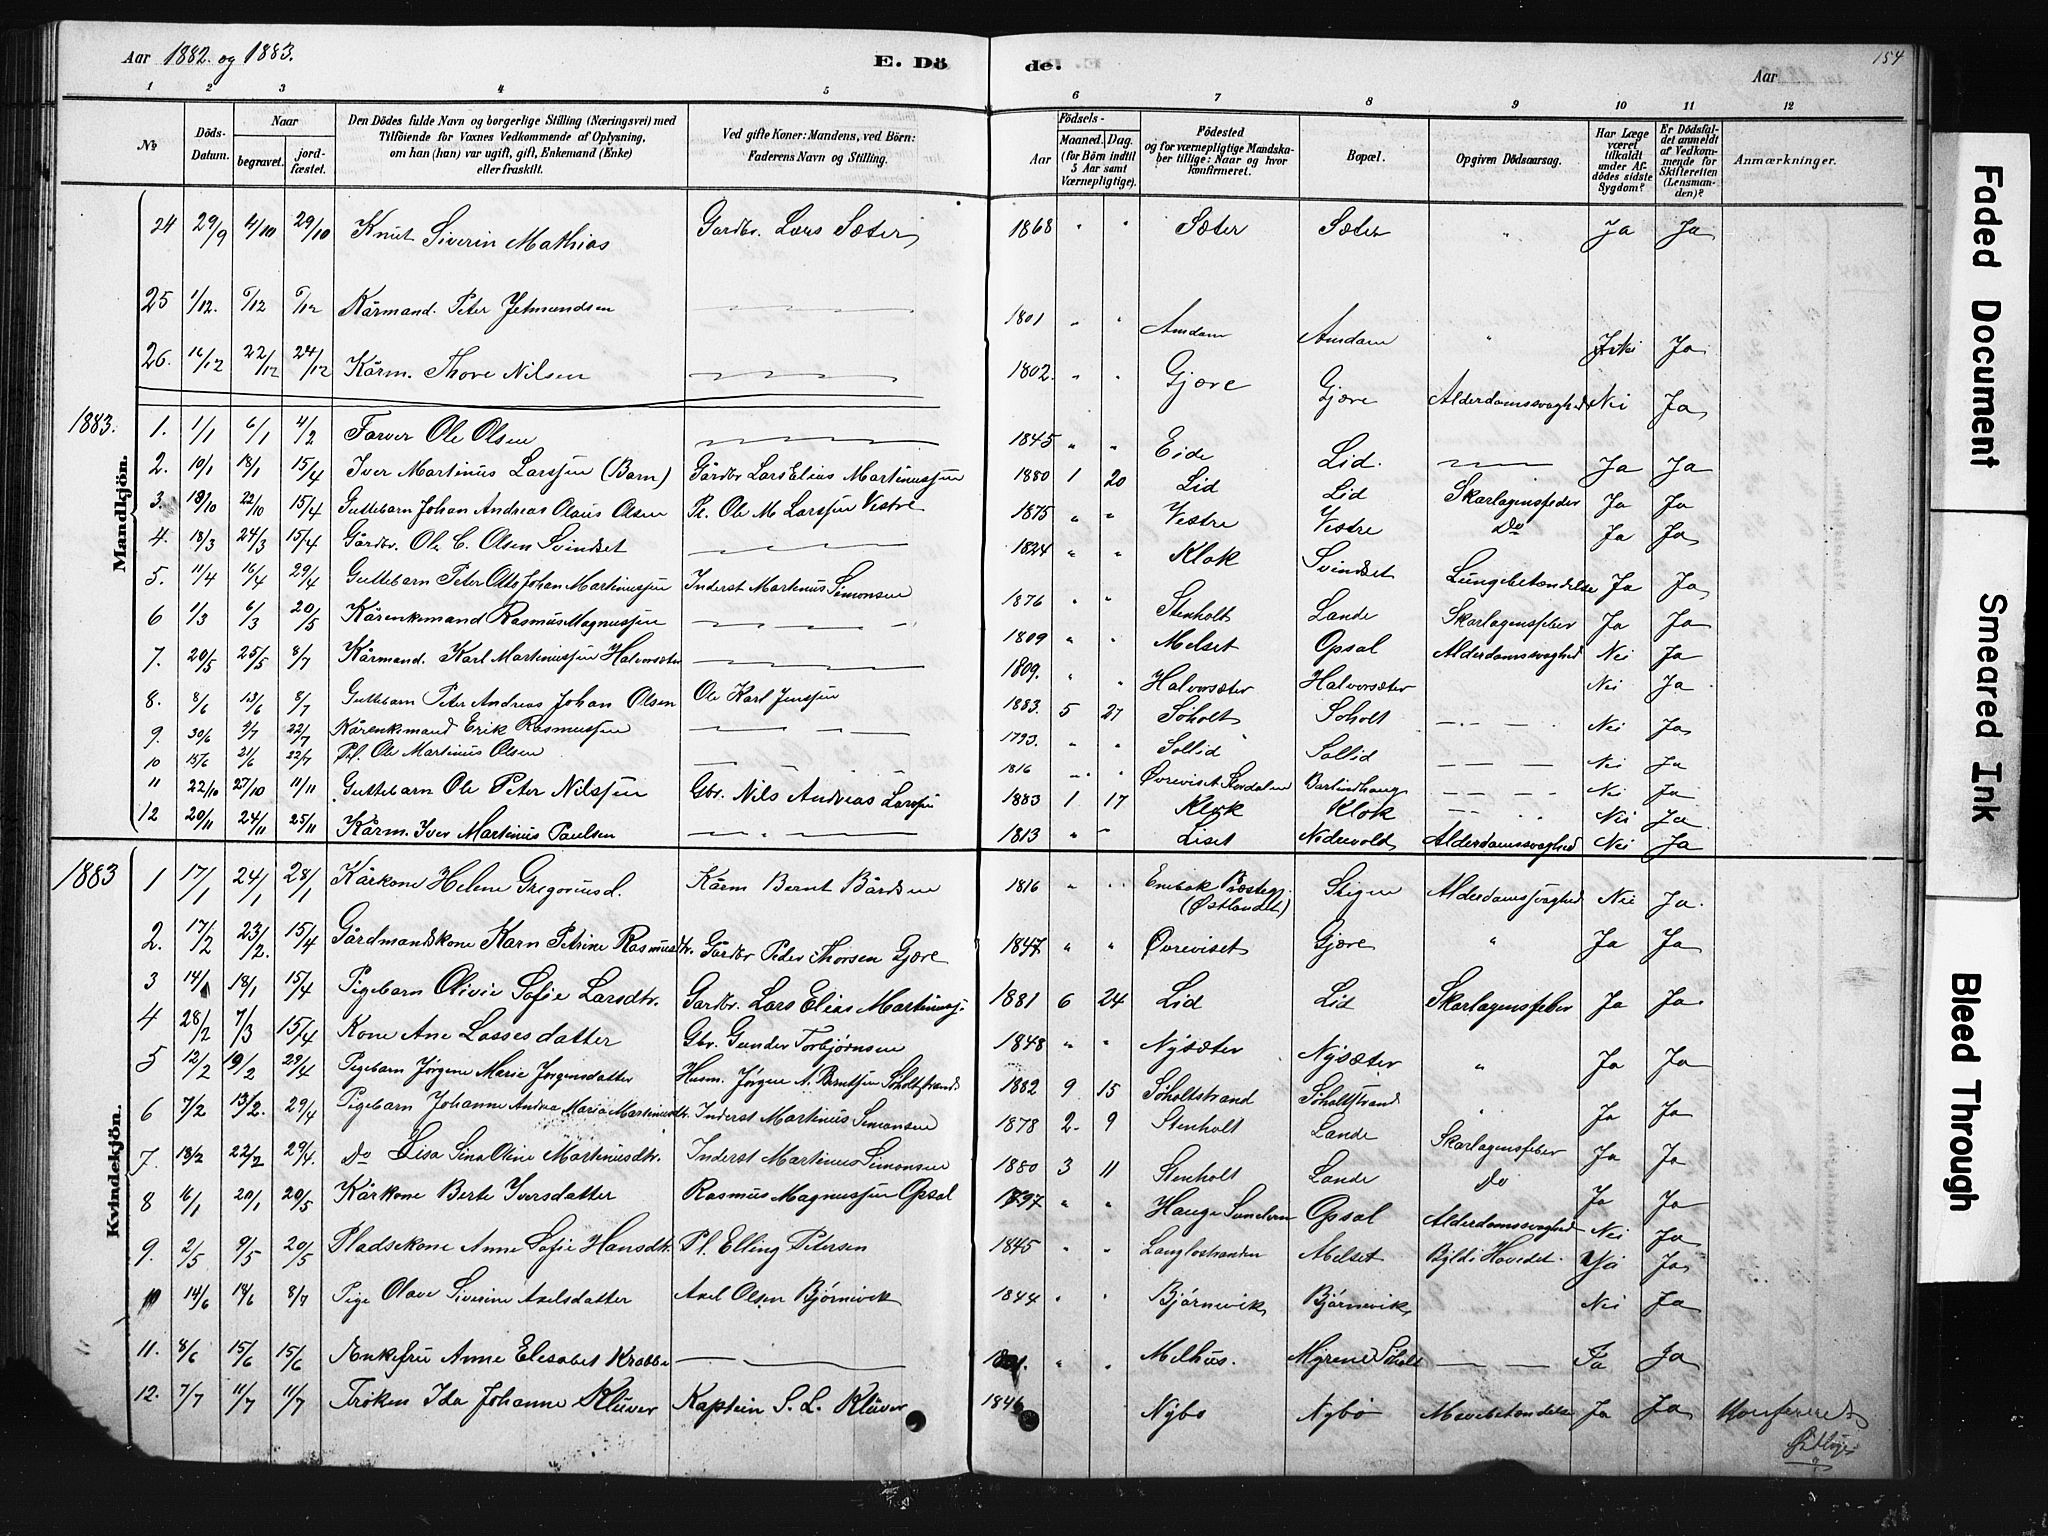 Aar 1882. og 1883.
E. Dö
de.
Aar
154
1 2 3 4 5 6 7 8 9 10 11 12
No
Döds-Datum.
Naar
begravet.
jord-fæstet.
Den Dödes fulde Navn og borgerlige Stilling (Næringsvei) med
Tilföiende for Voxnes Vedkommende af Oplysning,
om han (hun) var ugift, gift, Enkemand (Enke)
eller fraskilt.
Ved gifte Koner: Mandens, ved Börn:
Faderens Navn og Stilling.
Födsels-
Aar
Maaned. Dag.
(for Börn indtil
5 Aar samt
Værnepligtige).
Födested
og for værnepligtige Mandska-
ber tillige: Naar og hvor
konfirmeret.
Bopæl.
Opgiven Dödsaarsag.
Har Læge
været
tilkaldt
under Af-
dödes sidste
Sygdom?
Er Dödsfal-
det anmeldt
af Vedkom-
mende for
Skifteretten
(Lensman-
den)?
Anmærkninger.
24 29/9 4/10 29/10 Knut Siverin Mathias Gardbr. Lars Sæter 1868 " " Sæter Sæter " Ja Ja
25 1/12. 6/12 6/12 Kårmand. Peter Jetmundsen 1801 " " Amdam Amdam " Nei Ja
26. 16/12 22/12 24/12 Kårm. Thore Nilsen 1802. " " Gjære Gjære Alderdomssvaghed Nei Ja
1883.
Mandkjön.
1. 1/1 6/1 4/2 Farver Ole Olsen 1845 " " Eide Lid. Ja Ja
2. 10/1 18/1 15/4 Iver Martinus Larssen (Barn) Gårdbr Lars Elias Martinussen 1880 1 20 Lid Lid Skarlagensfeber Ja Ja
3. 19/10 22/10 15/4 Guttebarn Johan Andreas Olaus Olsen Pl. Ole M Larssen Vestre 1875 " " Vestre Vestre Do Ja Ja
4. 18/3 24/3 15/4 Gårdbr. Ole C. Olsen Svindset 1824 " " Klok Svindset Lungebetændelse Ja Ja
5. 11/4 16/4 29/4 Guttebarn Peter Otto Johan Martinussen Inderst Martinus Simonsen 1876 " " Stenholt Lande Skarlagensfeber Ja Ja
6 1/3 6/3 20/5 Kårenkemand Rasmus Magnussen 1809 " " Melset Opsal Alderdomssvaghed Nei Ja
7. 20/5 25/5 8/7 Kårmand. Karl Martinussen 1809. " " Halvorsæter Halvorsæter Nei Ja
8. 8/6 13/6 8/7 Guttebarn Peter Andreas Johan Olsen Ole Karl Jenssen 1883. 5 27 Søholt Søholt Nei Ja
9. 30/6 22/7 Kårenkemand Erik Rasmussen 1793. " " Sollid Sollid Nei Ja
10 15/6 21/6 22/7 Pl. Ole Martinus Olsen 1816 " " Øvreviset Stordalen Nei Ja
11 22/10 27/10 11/11 Guttebarn Ole Peter Nilssen Gbr. Nils Andreas Larssen 1883 1 17 Klok Klok Nei Ja
12 20/11 24/11 25/11 Kårm. Iver Martinus Paulsen 1813 " " Liset Nedrevold Alderdomssvaghed Nei Ja
1883
Kvindekjön.
1 17/1 24/1 28/1 Kårkone Helene Gregoriusd. Kårm Bernt Bårdsen 1816 " " Enebak Præstegj. (Østlandet) Stigen Alderdomssvaghed Nei Ja.
2. 17/2 23/2. 15/4 Gårdmandskone Karn Petrine Rasmusdtr. Gårdbr Peder Thorsen Gjære 1847 " " Øvreviset Gjære " Ja Ja
3 14/1 18/1 15/4 Pigebarn Olivie Sofie Larsdtr. Gardbr. Lars Elias Martinussj. 1881 6 24 Lid Lid Skarlagensfeber Ja Ja
4 28/2 7/3 15/4 Kone Ane Lassesdatter Gbr. Gunder Torbjørnsen 1848 " " Nysæter Nysæter " Ja Ja
5 12/2 19/2 29/4 Pigebarn Jørgene Marie Jørgensdatter Husm. Jørgen A. Berntsen Søholtstrand 1882 9 15 Søholtstrand Søholtstrand " Ja Ja
6 7/2 13/2. 29/4 Pigebarn Johanne Andrea Maria Martinusdtr. Inderst Martinus Simonsen 1878 2. 9 Stenholt Lande Skarlagensfeber Ja Ja
7. 18/2 22/2 29/4. do Lisa Sina Oline Martinusdtr. Inderst Martinus Simonsen 1880 3 11 Stenholt Lande Do Ja Ja
8 16/1 20/1 20/5 Kårkone Berte Iversdatter Rasmus Magnussen Opsal 1797 " " Hauge Opsal Alderdomssvaghed Nei Ja
9. 2/5 9/5 20/5 Pladsekone Anne Sofie Hansdtr. Pl. Elling Petersen 1845 " " Langlostranden Melset Byld i Hovedet. Nei Ja
10 14/6 18/6 8/7 Pige Olave Siverine Axelsdatter Axel Olsen Bjørnevik 1844 " " Bjørnevik Bjørnevik Nei Ja
11. 8/6 15/6 15/6 Enkefru Anne Elesabet Krabbe " " Melhus. Myrene Søholt Ja Ja
12. 7/7 11/7 11/7 Frøken Ida Johanne Klüver Kaptein S. L. Klüver 1846 Nybø Nybø Mavebetændelse Ja Ja
Faded Document
Smeared Ink
Bleed Through